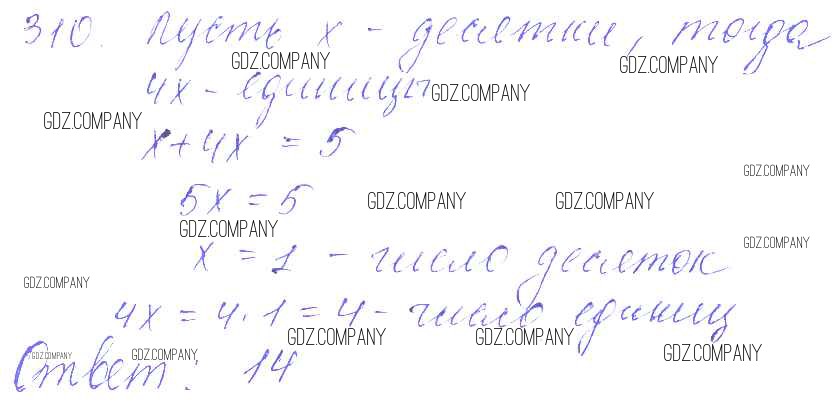 310. Пусть x - десятки, тогда
GDZ.COMPANY GDZ.COMPANY
4x - единицы GDZ.COMPANY
GDZ.COMPANY
x + 4x = 5
GDZ.COMPANY
5x = 5 GDZ.COMPANY GDZ.COMPANY
GDZ.COMPANY
x = 1 - число десяток
GDZ.COMPANY
GDZ.COMPANY
4x = 4 · 1 = 4 - число единиц
GDZ.COMPANY GDZ.COMPANY
GDZ.COMPANY GDZ.COMPANY GDZ.COMPANY
Ответ: 14